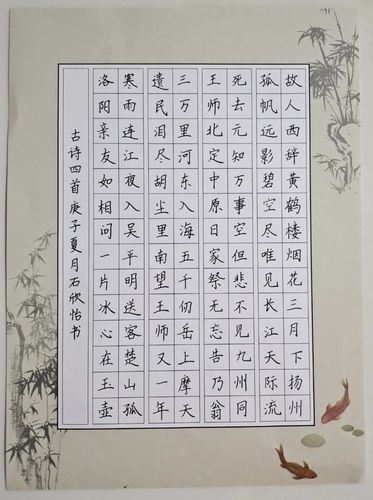 故人西辞黄鹤楼烟花三月下扬州
孤帆远影碧空尽唯见长江天际流
死去元知万事空但悲不见九州同
王师北定中原日家祭无忘告乃翁
三万里河东入海五千仞岳上摩天
遗民泪尽胡尘里南望王师又一年
寒雨连江夜入吴平明送客楚山孤
洛阳亲友如相问一片冰心在玉壶
古诗四首庚子夏月石欣怡书